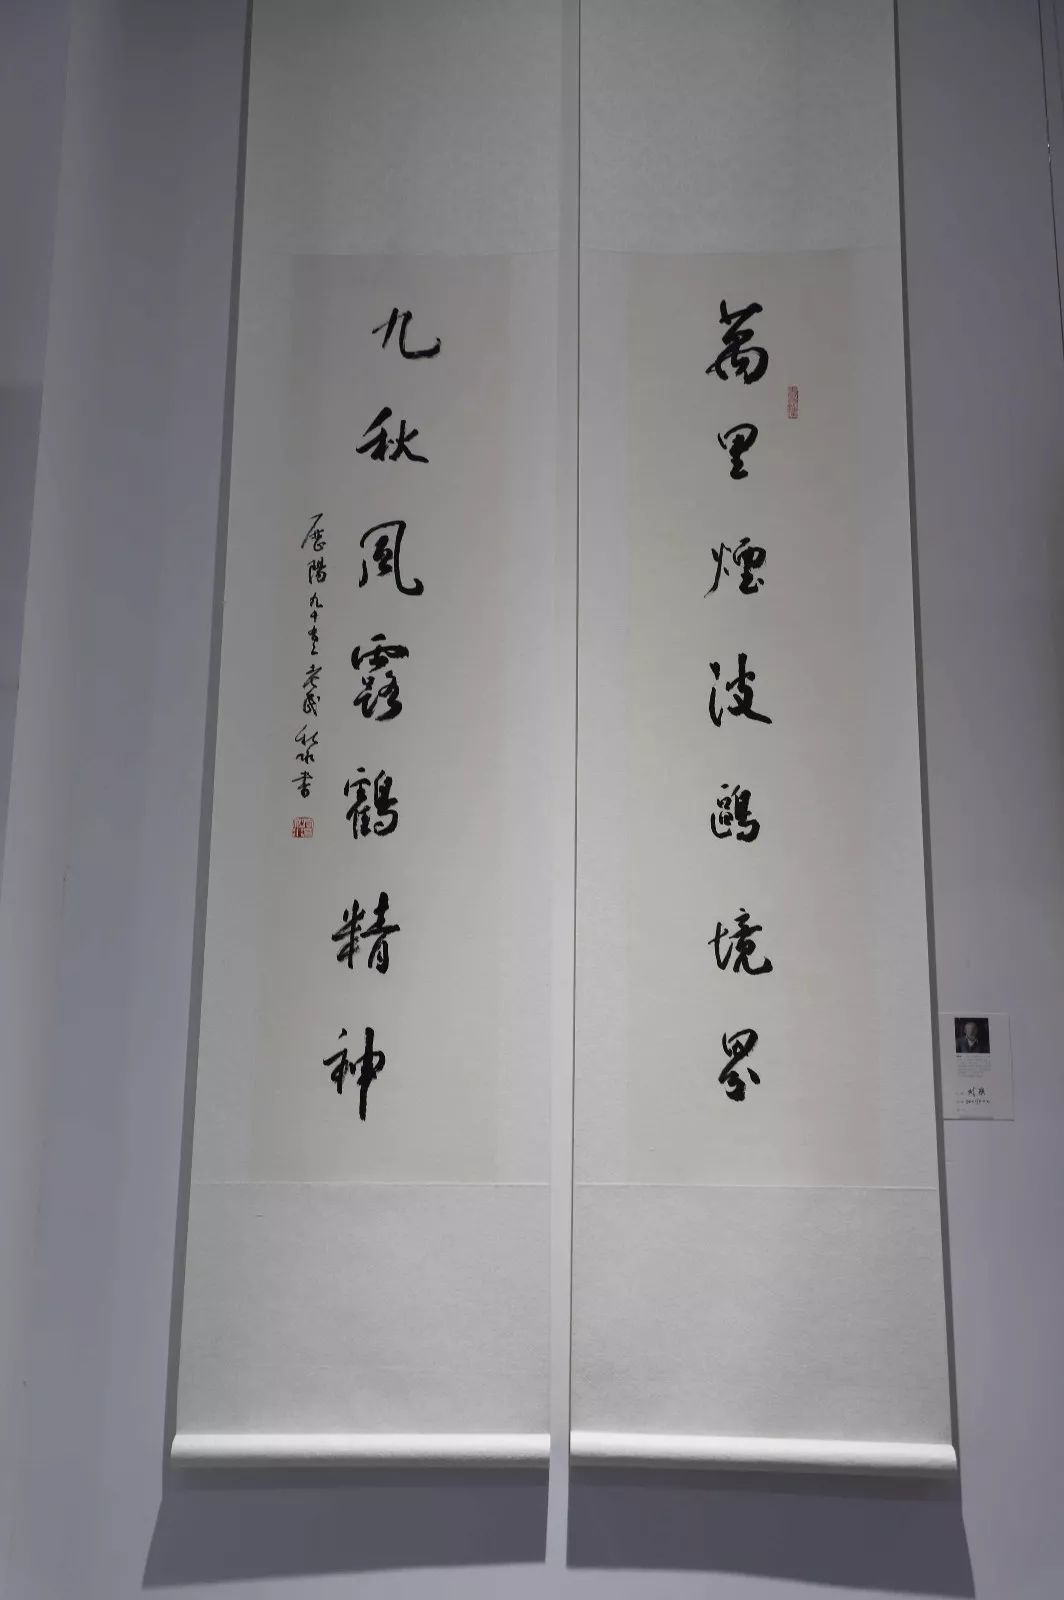 萬里煙波鷗境界
九秋風露鶴精神
歷陽九十五老民秋水書